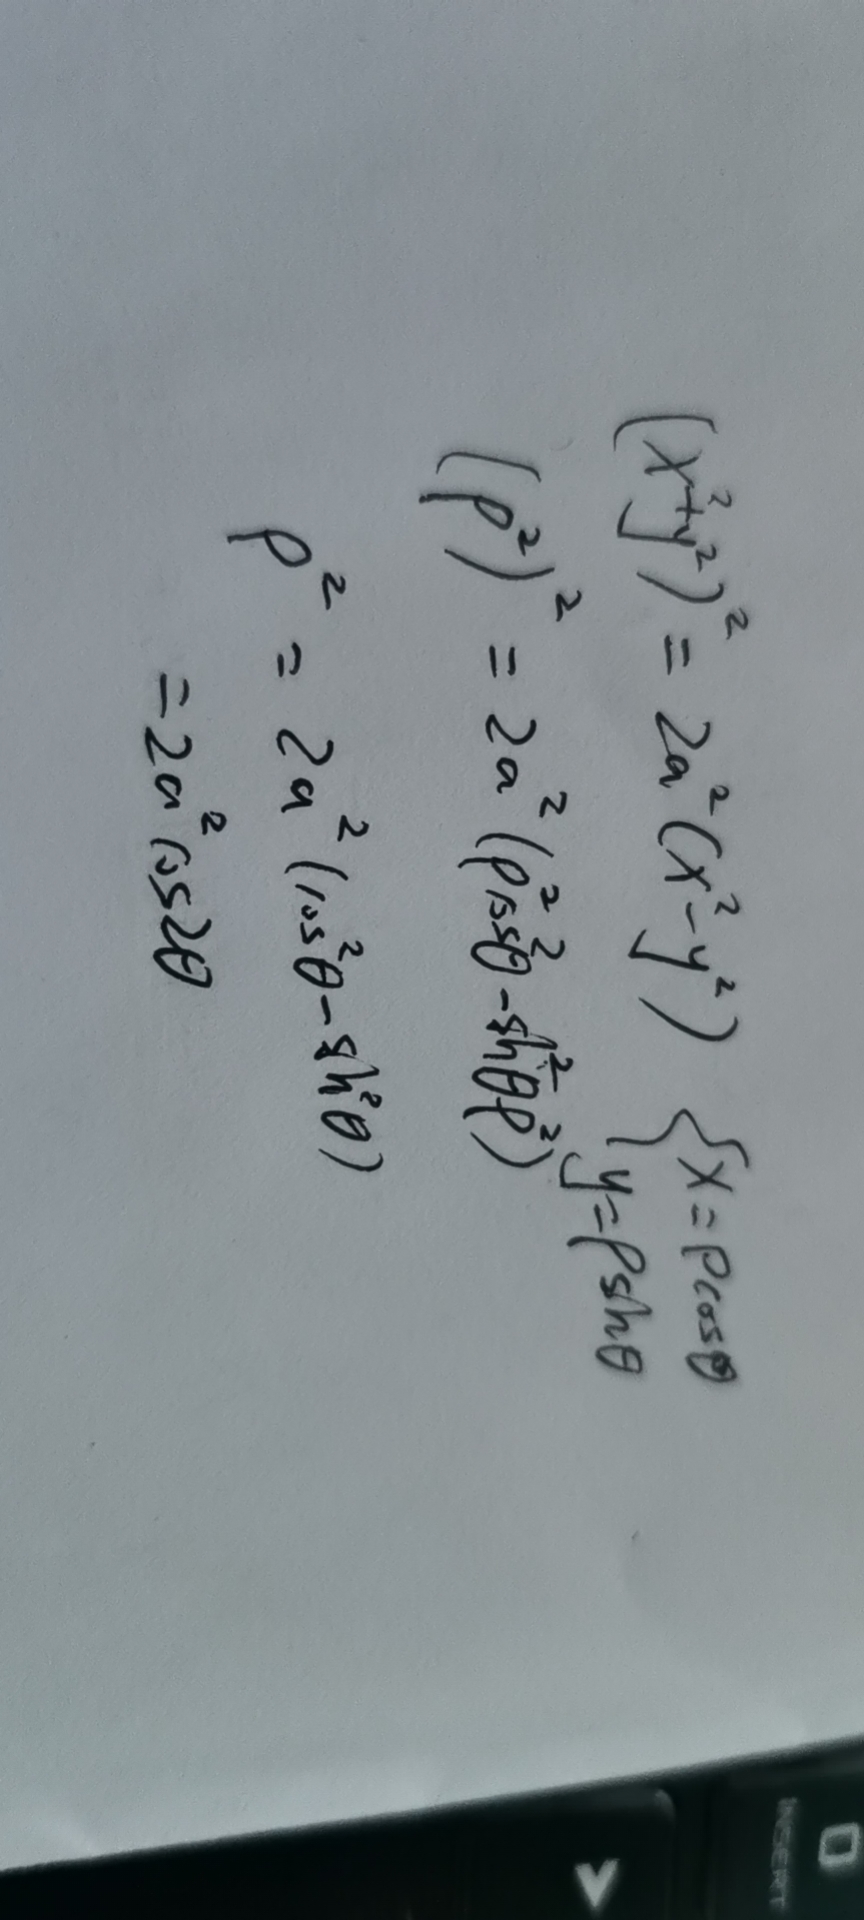 (x²+y²)² = 2a²(x²-y²) { x = ρcosθ
y = ρsinθ
(ρ²)² = 2a²(ρ²cos²θ - sin²θρ²)
ρ² = 2a²(cos²θ - sin²θ)
= 2a²cos2θ
0
INSERT